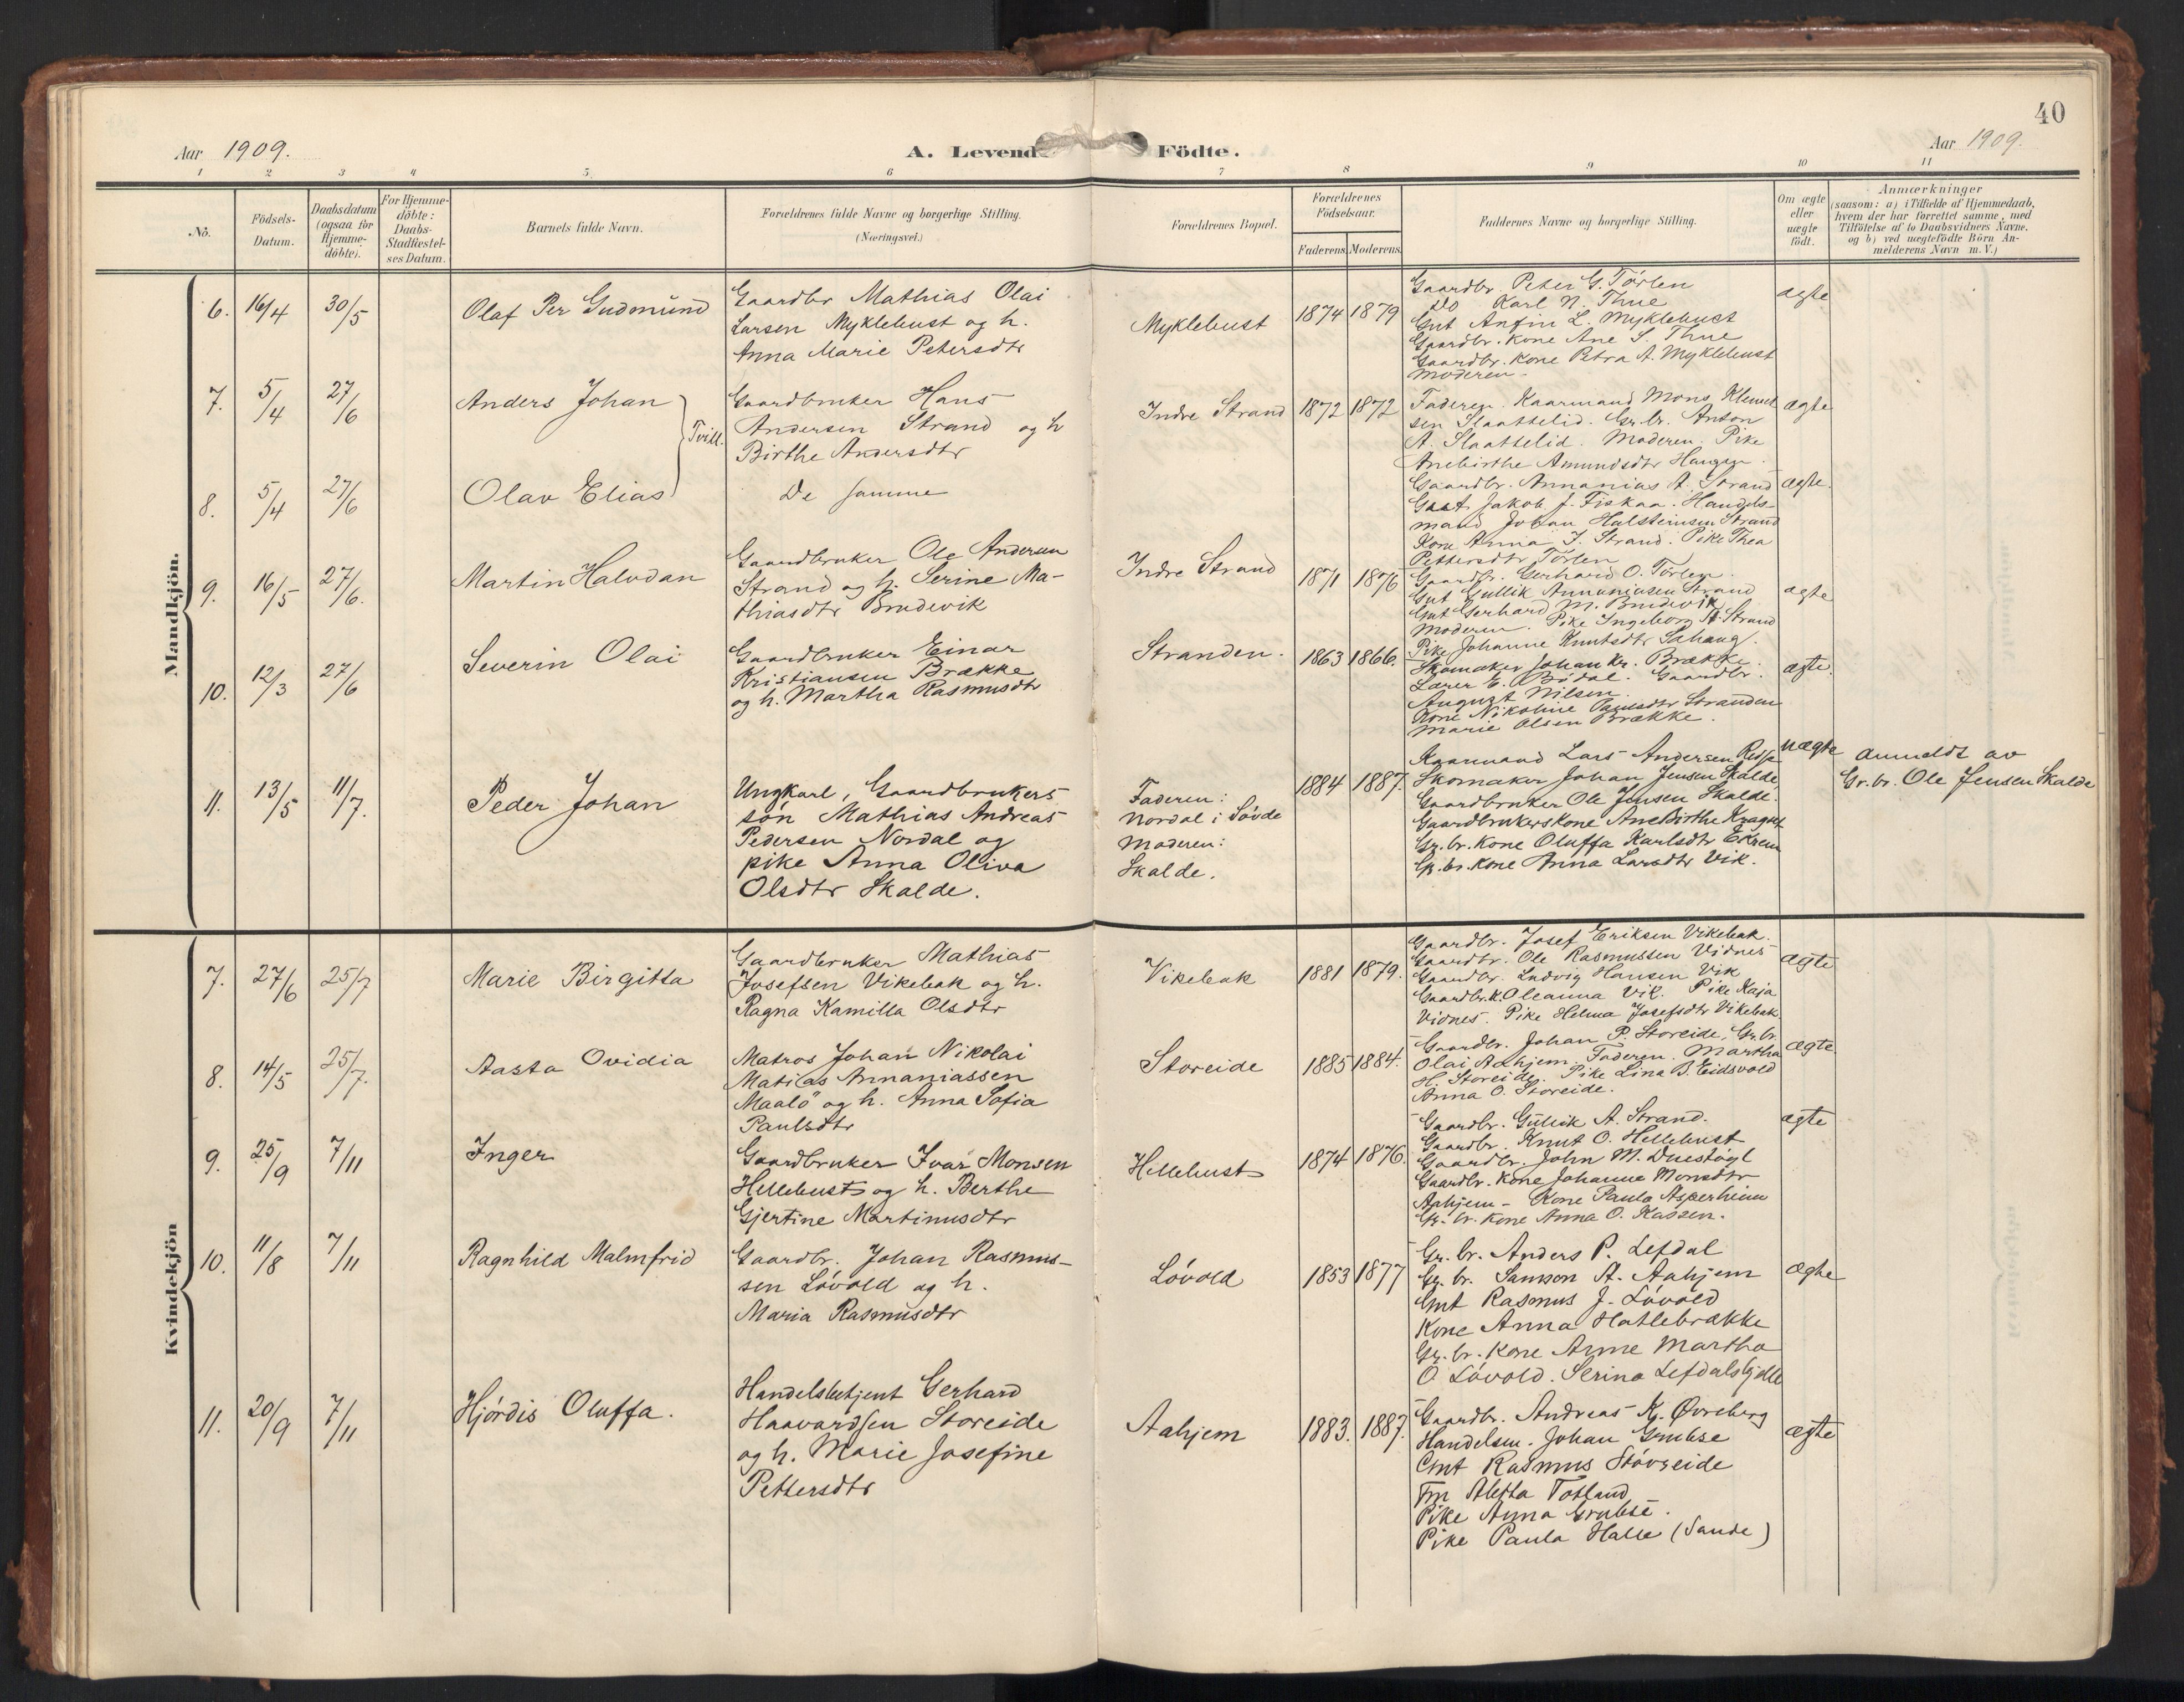 40
Aar 1909.
A. Levende Födte.
Aar 1909.
1 2 3 4 5 6 7 8 9 10 11
No.
Födsels-Datum.
Daabsdatum (ogsaa for Hjemme-döbte).
For Hjemme-döbte: Daabs-Stadfæstel-ses Datum.
Barnets fulde Navn.
Forældrenes fulde Navne og borgerlige Stilling.
(Næringsvei.)
Forældrenes Bopæl.
Forældrenes Födselsaar.
Faderens. Moderens.
Faddernes Navne og borgerlige Stilling.
Om ægte eller uægte födt.
Anmærkninger
(saasom: a) i Tilfælde af Hjemmedaab,
hvem der har forrettet samme, med
Tilföielse af to Daabsvidners Navne,
og b) ved uægtefödte Börn An-
melderens Navn m. V.)
Mandkjön.
6. 16/4 30/5 Olaf Per Gudmund
Gaardbr Mathias Olai
Larsen Myklebust og h.
Anna Marie Petersdtr
Myklebust 1874 1879
Gaardbr. Peter G. Törlen
Do Karl N. Thue
Gut Anfin L. Myklebust
Gaardbr. kone Ane S. Thue
Gaardbr. kone Petra A. Myklebust
Moderen.
ægte
7. 5/4 27/6 Anders Johan
Tvill.
Gaardbruker Hans
Andersen Strand og h
Birthe Andersdtr
Indre Strand 1872 1872
Faderen. Kaarmand Mons Klemet
sen Slaattelid. Gr.br. Anton
A. Slaattelid. Moderen. Pike
Anebirthe Amundsdtr Haugen.
ægte
8. 5/4 27/6 Olav Elias
De samme
Gaardbr. Annanias A. Strand
Gaat. Jakob J. Fiskaa. Handels-
mand Johan Halsteinsen Strand
Kone Anna J. Strand. Pike Thea
Pettersdtr Törlen
ægte.
9. 16/5 27/6. Martin Halvdan
Gaardbruker Ole Andersen
Strand og h. Serine Ma-
thiasdtr Brudevik
Indre Strand 1871 1876
Gaardbr. Gerhard O. Törlen.
Gut Gullik Annaniasen Strand
Gut Gerhard M. Brudevik
Moderen. Pike Ingeborg A. Strand
Pike Johanne Knutsdtr Sahaug.
ægte
10. 12/3 27/6 Severin Olai
Gaardbruker Einar
Kristiansen Brække
og h. Martha Rasmusdtr
Stranden. 1863 1866.
Skomaker Johan Kr. Brække.
Lærer E. A. Bödal. Gaardbr.
August Nilsen.
Kone Nikoline Paulsdtr Stranden
Marie Olsen Brække.
ægte.
11. 13/5 11/7. Peder Johan
Ungkarl, Gaardbrukers
sön Mathias Andreas
Pedersen Nordal og
pike Anna Oliva
Olsdtr Skalde.
Faderen:
Nordal i Sövde
Moderen:
Skalde.
1884 1887.
Kaarmand Lars Andersen
Skomaker Johan Jensen Skalde
Gaardbruker Ole Jensen Skalde.
Gaardbrukerskone Anebirthe Kragset
Gr.br. kone Oluffa Karlsdtr Ekrem
Gr.br. kone Anna Larsdtr Vik.
uægte
anmeldt av
Gr.br. Ole Jensen Skalde
Kvindekjön
7. 27/6 25/7 Marie Birgitta
Gaardbruker Mathias
Josefsen Vikebak og h.
Ragna Kamilla Olsdtr
Vikebak 1881 1879.
Gaardbr. Josef Eriksen Vikebak.
Gaardbr. Ole Rasmussen Vidnes
Gaardbr Ludvig Hansen Vik
Gaardbr.k. Oleanna Vik. Pike Kaja
Vidnes. Pike Helma Josefsdtr Vikebak
ægte
8. 14/5 25/7. Aasta Ovidia
Matros Johan Nikolai
Matias Annaniassen
Maalö og h. Anna Sofia
Paulsdtr
Storeide 1885 1884.
Gaardbr. Johan P. Storeide, Gr.br.
Olai Aahjem. Faderen. Martha
H. Storeide. Pike Lina B. Eidsvold
Anna O. Storeide.
ægte.
9. 25/9 7/11 Inger
Gaardbruker Ivar Monsen
Hellebust og h. Berthe
Gjertine Martinusdtr
Hellebust 1874 1876.
Gaardbr. Gullik A. Strand.
Gaardbr. Knut O. Hellebust
Gaardbr. John M. Duestöyl
Gaardbr. kone Johanne Monsdtr
Aahjem - Kone Paula Asperheim
Gr.br. kone Anna O. Kassen.
ægte
10. 11/8 7/11 Ragnhild Malmfrid
Gaardbr. Johan Rasmus-
sen Lövold og h.
Maria Rasmusdtr
Lövold 1853 1877
Gr.br. Anders P. Lefdal
Gr.br. Samson A. Aahjem
Gut Rasmus J. Lövold
Kone Anna Hatlebrække
Gr.br. kone Anne Martha
O Lövold. Serina Lefdalskjelle
ægte
11. 20/9 7/11 Hjördis Oluffa.
Handelsbetjent Gerhard
Haavardsen Storeide
og h. Marie Josefine
Pettersdtr
Aahjem 1883. 1887.
Gaardbr. Andreas K. Øvreberg
Handelsm. Johan Grubse
Gut Rasmus Stövreide
Fru Aletta Totland
Pike Anna Grubse.
Pike Paula Halle (Sande)
ægte